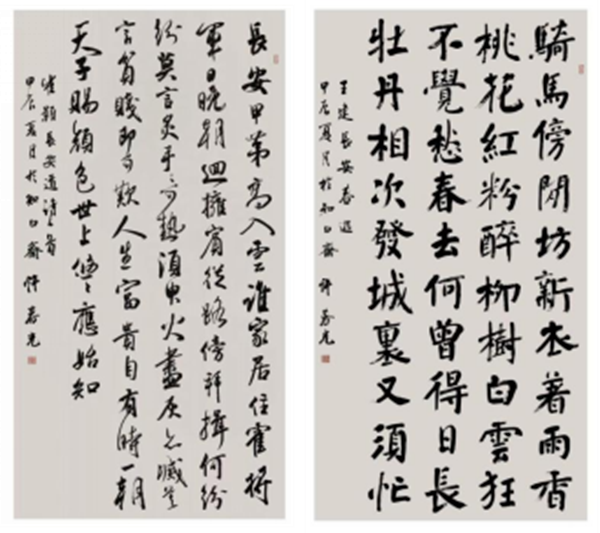 長安甲第高入雲誰家居住霍將
軍日晚朝迴擁賓從路傍拜揖何紛
紛莫言炙手手可熱須臾火盡灰亦滅莫
言貧賤即可欺人生富貴自有時一朝
天子賜顏色世上悠悠應始知
崔顥長安道詩一首
甲辰夏月於知白齋許光
騎馬傍閑坊新衣著雨香
桃花紅粉醉柳樹白雲狂
不覺愁春去何曾得日長
牡丹相次發城裏又須忙
王建長安春遊
甲辰夏月於知白齋許光